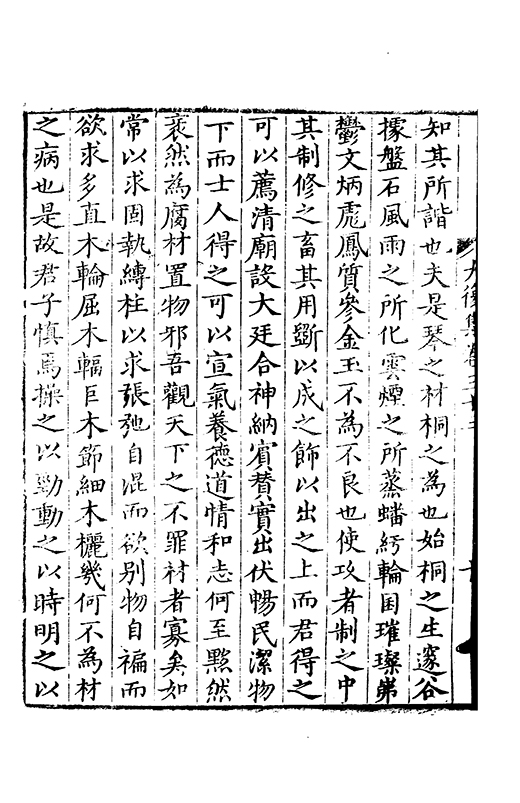 知其所諧也夫是琴之材桐之為也始桐之生邃谷
據盤石風雨之所化雲煙之所蒸蟠紆輪囷璀璨岪
鬱文炳彪鳳質參金玉不為不良也使攻者制之中
其制修之畜其用斵以成之飾以出之上而君得之
可以薦清廟設大廷合神納賓贊實出伏暢民潔物
下而士人得之可以宣氣養德道情和志何至黙然
衺然為腐材置物邪吾觀天下之不罪材者寡矣如
常以求固執縛柱以求張弛自混而欲别物自褊而
欲求多直木輪屈木輻巨木節細木欐幾何不為材
之病也是故君子慎焉操之以勁動之以時明之以